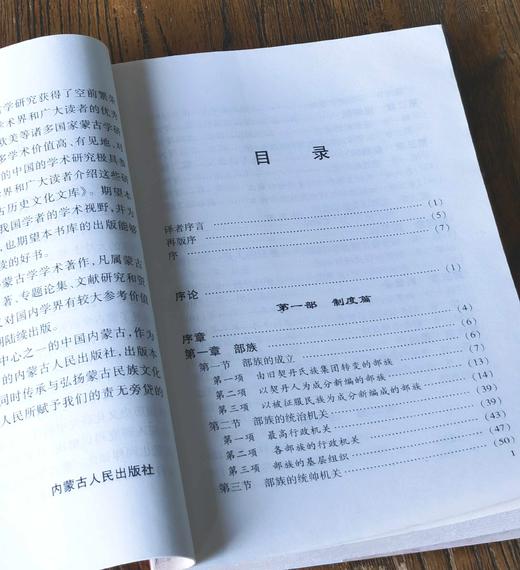 古学研究获得了空前繁荣
学术界和广大读者的优秀
欧美等诸多国家蒙古学研
多学术价值高、有见地、对
的中国的学术研究极具参
学界和广大读者介绍这些研
古历史文化文库》。期望本
我国学者的学术视野，并为
，也期望本书库的出版能够
读的好书。
蒙古学学术著作，凡属蒙古
著、专题论集、文献研究和资
对国内学界有较大参考价值
期陆续出版。
中心之一的中国内蒙古，作为
的内蒙古人民出版社，出版本
同时传承与弘扬蒙古民族文化
人民所赋予我们的责无旁贷的
内蒙古人民出版社
目 录
译者序言 (1)
再版序 (5)
序 (7)
序论 (1)
第一部 制度篇
序章 (4)
第一章 部族 (6)
第一节 部族的成立 (6)
第一项 由旧契丹氏族集团转变的部族 (7)
第二项 以契丹人为成分新编的部族 (13)
第三项 以被征服民族为成分新编成的部族 (14)
第二节 部族的统治机关 (39)
第一项 最高行政机关 (39)
第二项 各部族的行政机关 (43)
第三项 部族的基层组织 (47)
第三节 部族的统帅机关 (50)
1